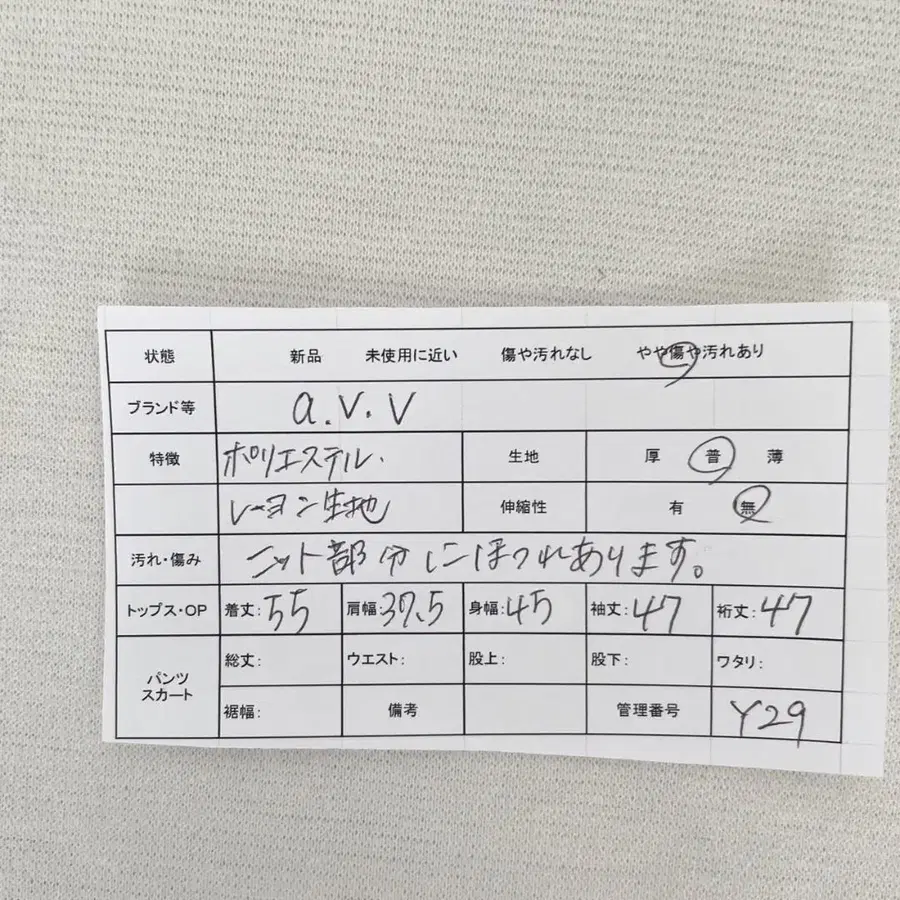 状態 新品 未使用に近い 傷や汚れなし やや傷や汚れあり
ブランド等 a.v.v
特徴 ポリエステル・ 生地 厚 普 薄
レーヨン生地 伸縮性 有 無
汚れ・傷み ニット部分にほつれあります。
トップス・OP 着丈:55 肩幅:37.5 身幅:45 袖丈:47 裄丈:47
パンツ スカート 総丈: ウエスト: 股上: 股下: ワタリ:
裾幅: 備考 管理番号 Y29